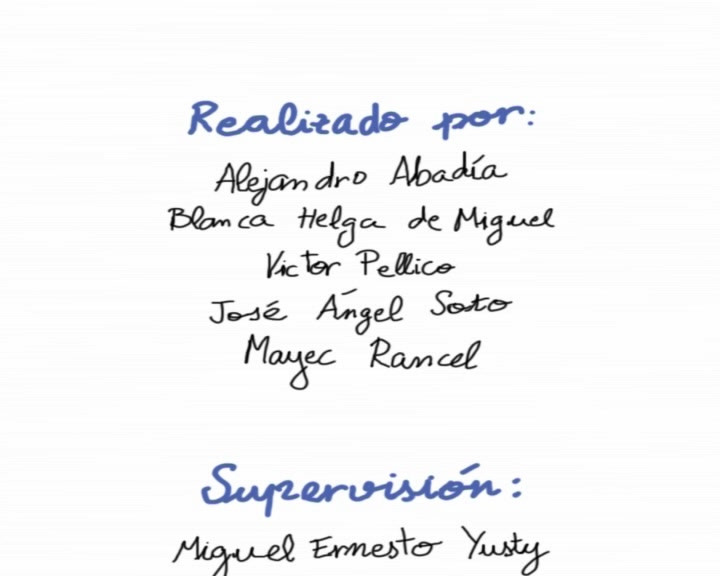 Realizado por:
Alejandro Abadía
Blanca Helga de Miguel
Victor Pellico
José Ángel Soto
Mayec Rancel
Supervisión:
Miguel Ernesto Yusty